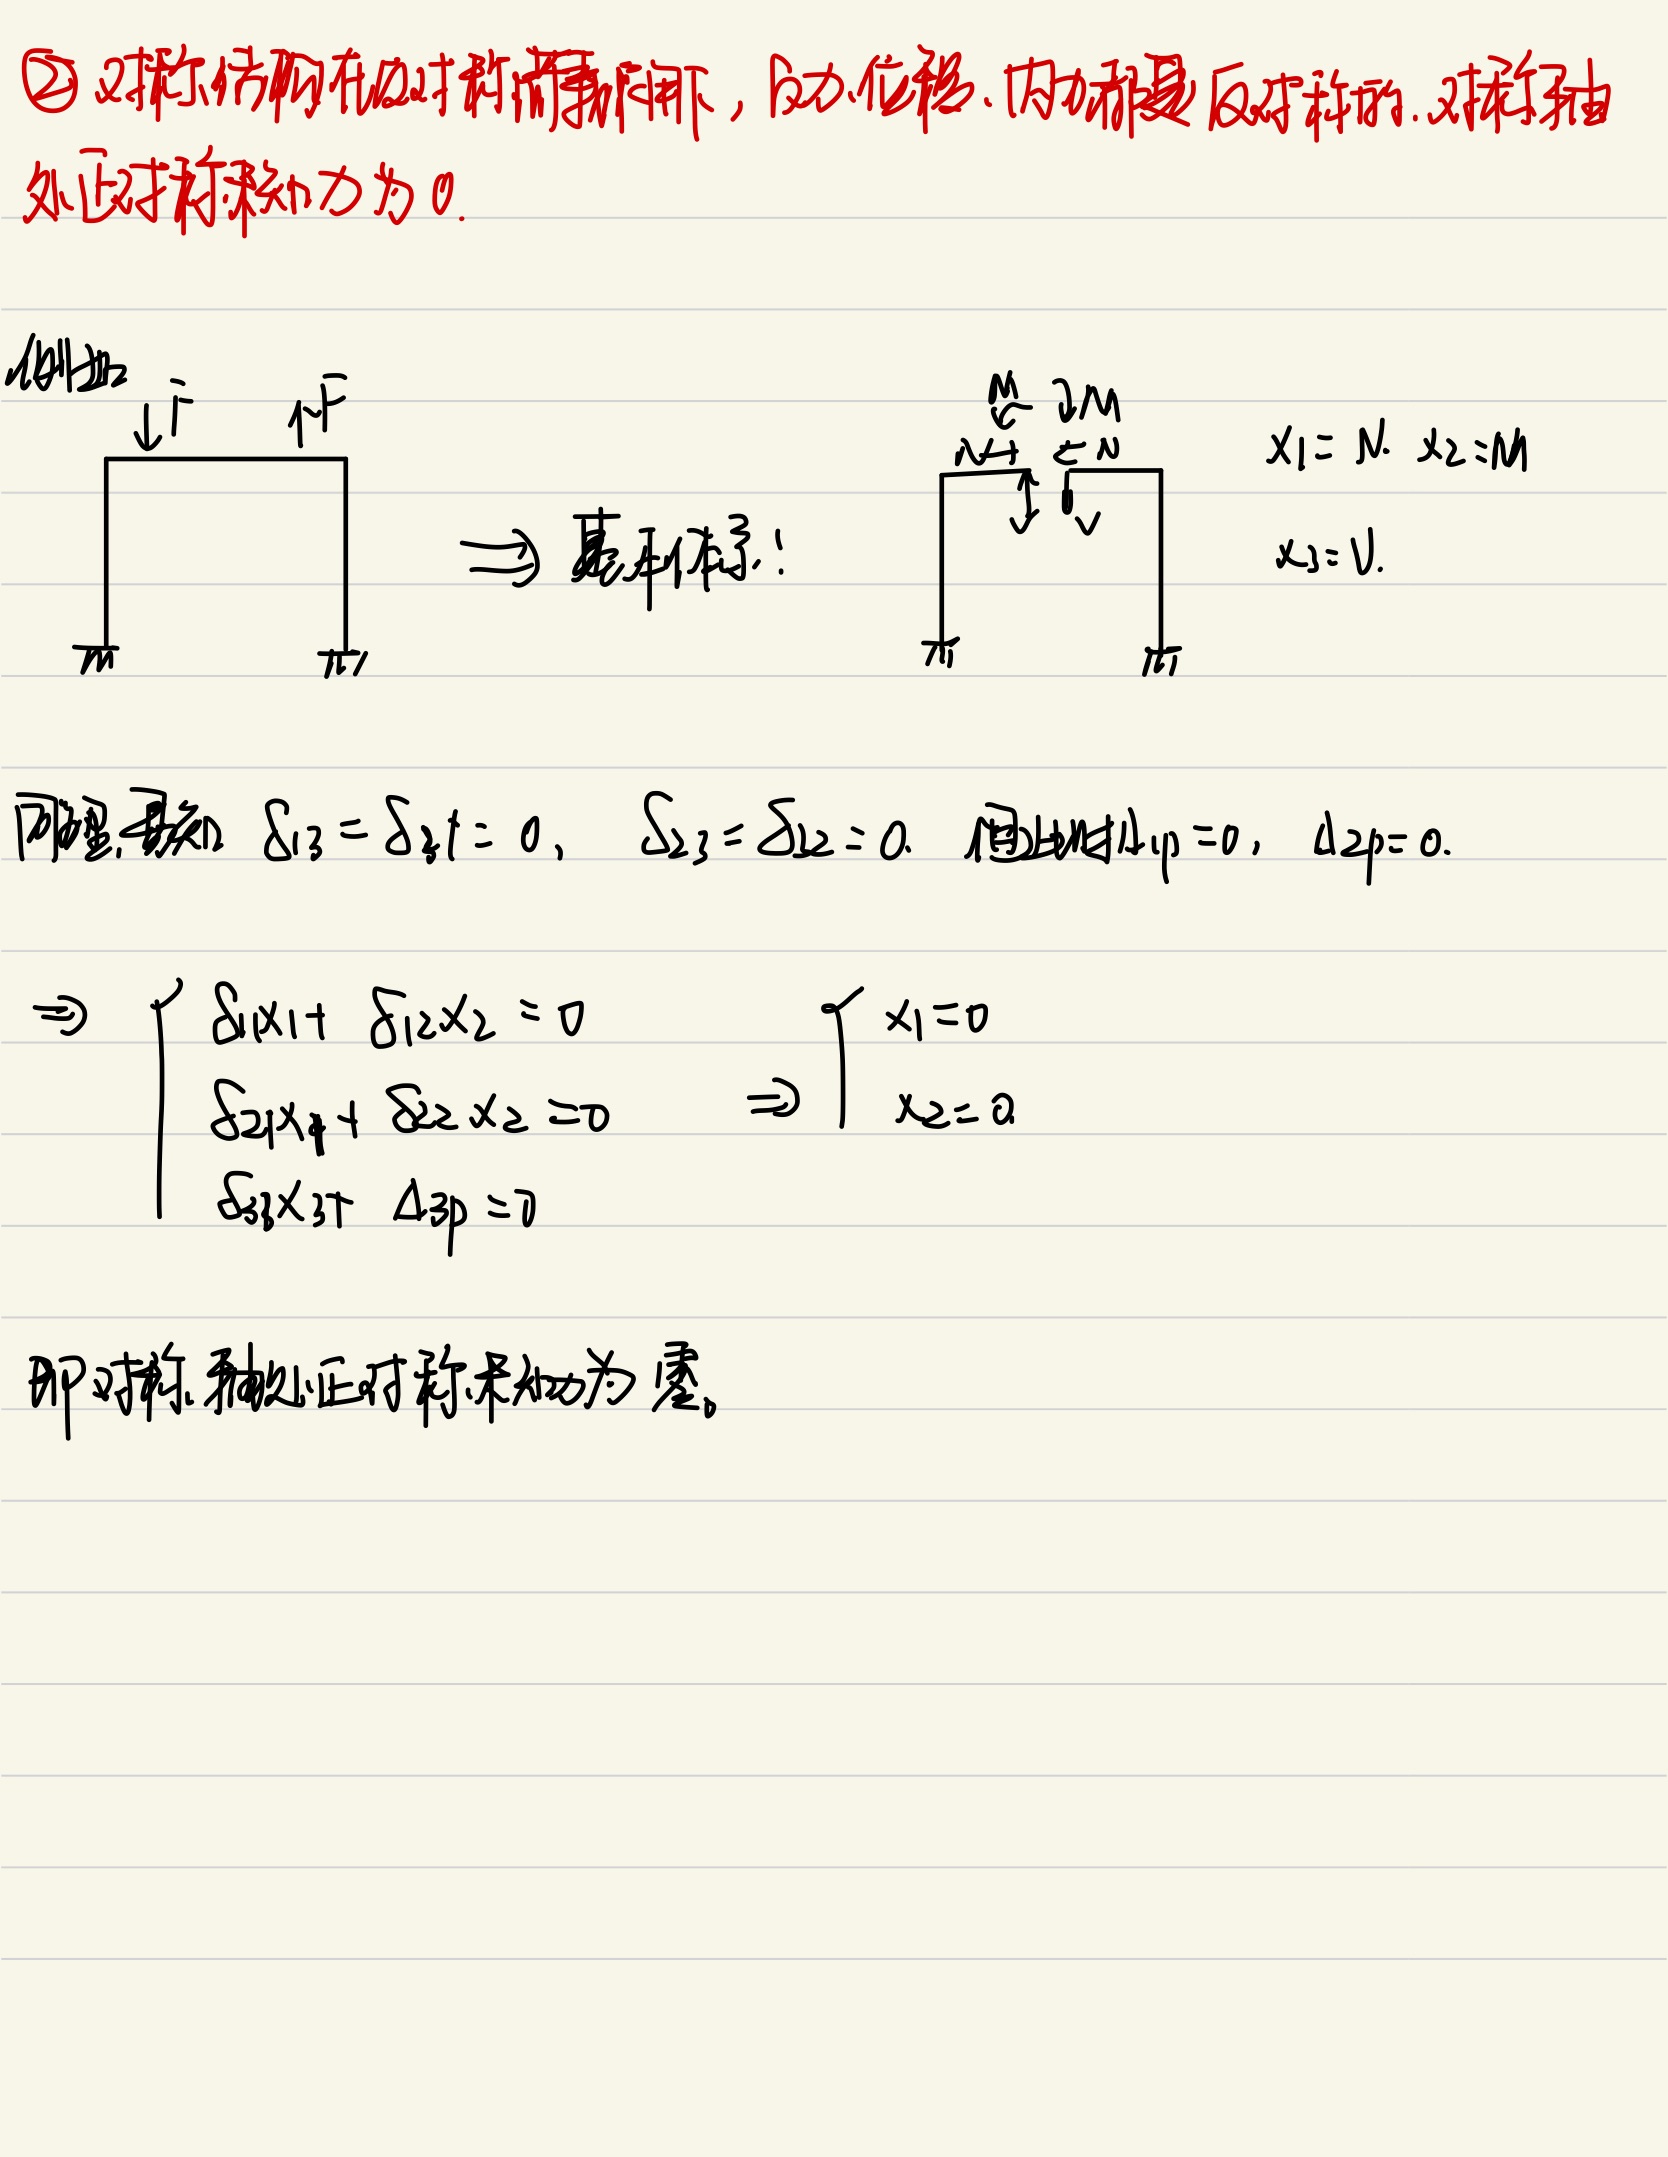 ② 对称结构在反对称荷载作用下，反力、位移、内力都是反对称的．对称轴
处正对称未知力为0.
例如
F F
M M
N N
V V
X1 = N. X2 = M
X3 = V.
⇒ 基本体系：
同理, 易知 δ13 = δ31 = 0, δ23 = δ32 = 0. 但此时Δ1p = 0, Δ2p = 0.
⇒ { δ11X1 + δ12X2 = 0 { X1 = 0
δ21X1 + δ22X2 = 0 ⇒ X2 = 0.
δ33X3 + Δ3p = 0
即对称轴处正对称未知力为零。